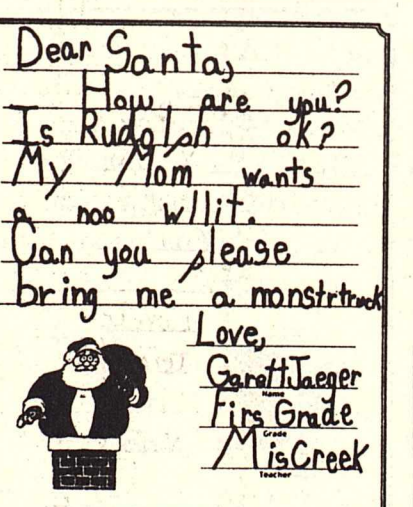 Dear Santa,
How are you?
Is Rudolph ok?
My Mom wants
a noo wllit.
Can you please
bring me a monstrtruck
Love,
GarettJaeger
Name
Firs Grade
Grade
MisCreek
Teacher